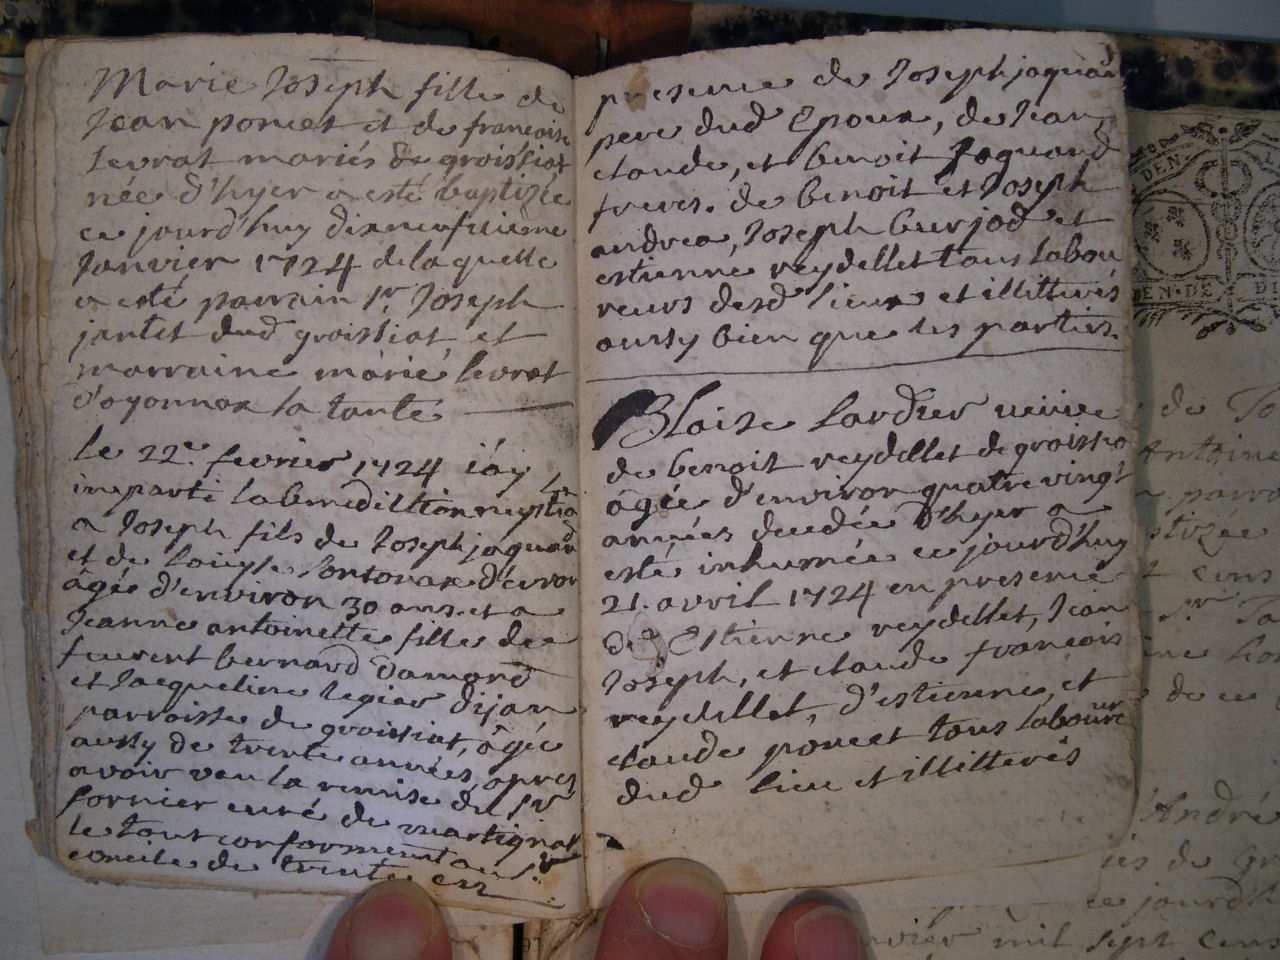 Marie Joseph fille de
Jean poncet et de francoise
levrat mariés de groissiat
née d'hyer a esté baptizée
ce jourd'huy dixneufvieme
Janvier 1724 de laquelle
a esté parrain Sr Joseph
jantet dud groissiat et
marraine marie levrat
d'oyonnax la tante
le 22e fevrier 1724 i'ay
imparti la benediction nuptia
a Joseph fils de Joseph jaquand
et de Louyse
âgée d'environ 30 ans et a
Jeanne antoinette fille de
feu bernard damond
et Jacqueline legier dijan
parroisse de groissiat, âgée
aussy de trente années, apres
avoir veu la remise du Sr
fornier curé de martignat
le tout conformement au St
concile de trente
presence de Joseph jaquand
pere dud Epoux, de Jean
claude, et benoit Jaquand
freres. de benoit et Joseph
andrea, Joseph burjod et
estienne reydellet tous labou
reurs desd lieux et illitterés
aussy bien que les parties.
Blaise lardier veuve
de benoit reydellet de groissia
âgée d'environ quatre vingt
années decedée d'hyer a
esté inhumée ce jourd'huy
21. avril 1724 en presence
de Estienne reydellet, Jean
Joseph, et claude francois
reydellet, d'estienne, et
claude poncet tous laboureurs
dud lieu et illitterés
DEN
DEN·DE
de
Antoine
parra
de ce
André
de
ce jourd'h
mil sept cens